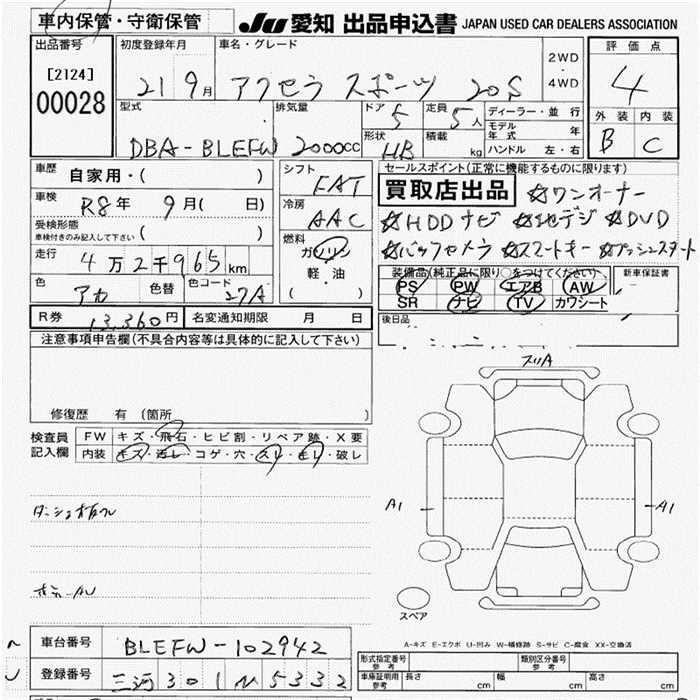 車内保管・守衛保管
JU 愛知 出品申込書 JAPAN USED CAR DEALERS ASSOCIATION
出品番号
[2124]
00028
初度登録年月
21 9月
車名・グレード
アクセラ スポーツ 20S
2WD
・
4WD
評価点
4
外装 内装
B C
型式
DBA-BLEFW
排気量
2000cc
ドア 5
形状 HB
定員 5人
積載 kg
ディーラー・並行
モデル年式 年
ハンドル 左・右
車歴 自家用・( )
車検 R8年 9月( 日)
受検形態
車検付きのみ記入して下さい ( )
走行 4万2千965km
色 アカ 色替 色コード 27A
シフト FAT
冷房 AAC
燃料
ガソリン
軽・油
( )
セールスポイント(正常に機能するものに限ります)
買取店出品 ☆ワンオーナー
☆HDDナビ ☆地デジ ☆DVD
☆バックカメラ ☆スマートキー ☆プッシュスタート
装備品(純正品に限り○をつけてください)
PS PW エアB AW
SR ナビ TV カワシート
新車保証書
R券 13,360円 名変通知期限 月 日
後日品
注意事項申告欄(不具合内容等は具体的に記入して下さい)
修復歴 有(箇所 )
検査員記入欄
FW キズ・飛石・ヒビ割・リペア跡・X要
内装 キズ・汚レ・コゲ・穴・スレ・モレ・破レ
A1
A1
スペア
A-キズ E-エクボ U-凹み W-補修跡 S-サビ C-腐食 XX-交換済
車台番号 BLEFW-102942
登録番号 三河 301 N 5332
形式指定番号 参考
類別区分番号 参考
車庫証明用 参考 長さ cm 幅 cm 高さ cm